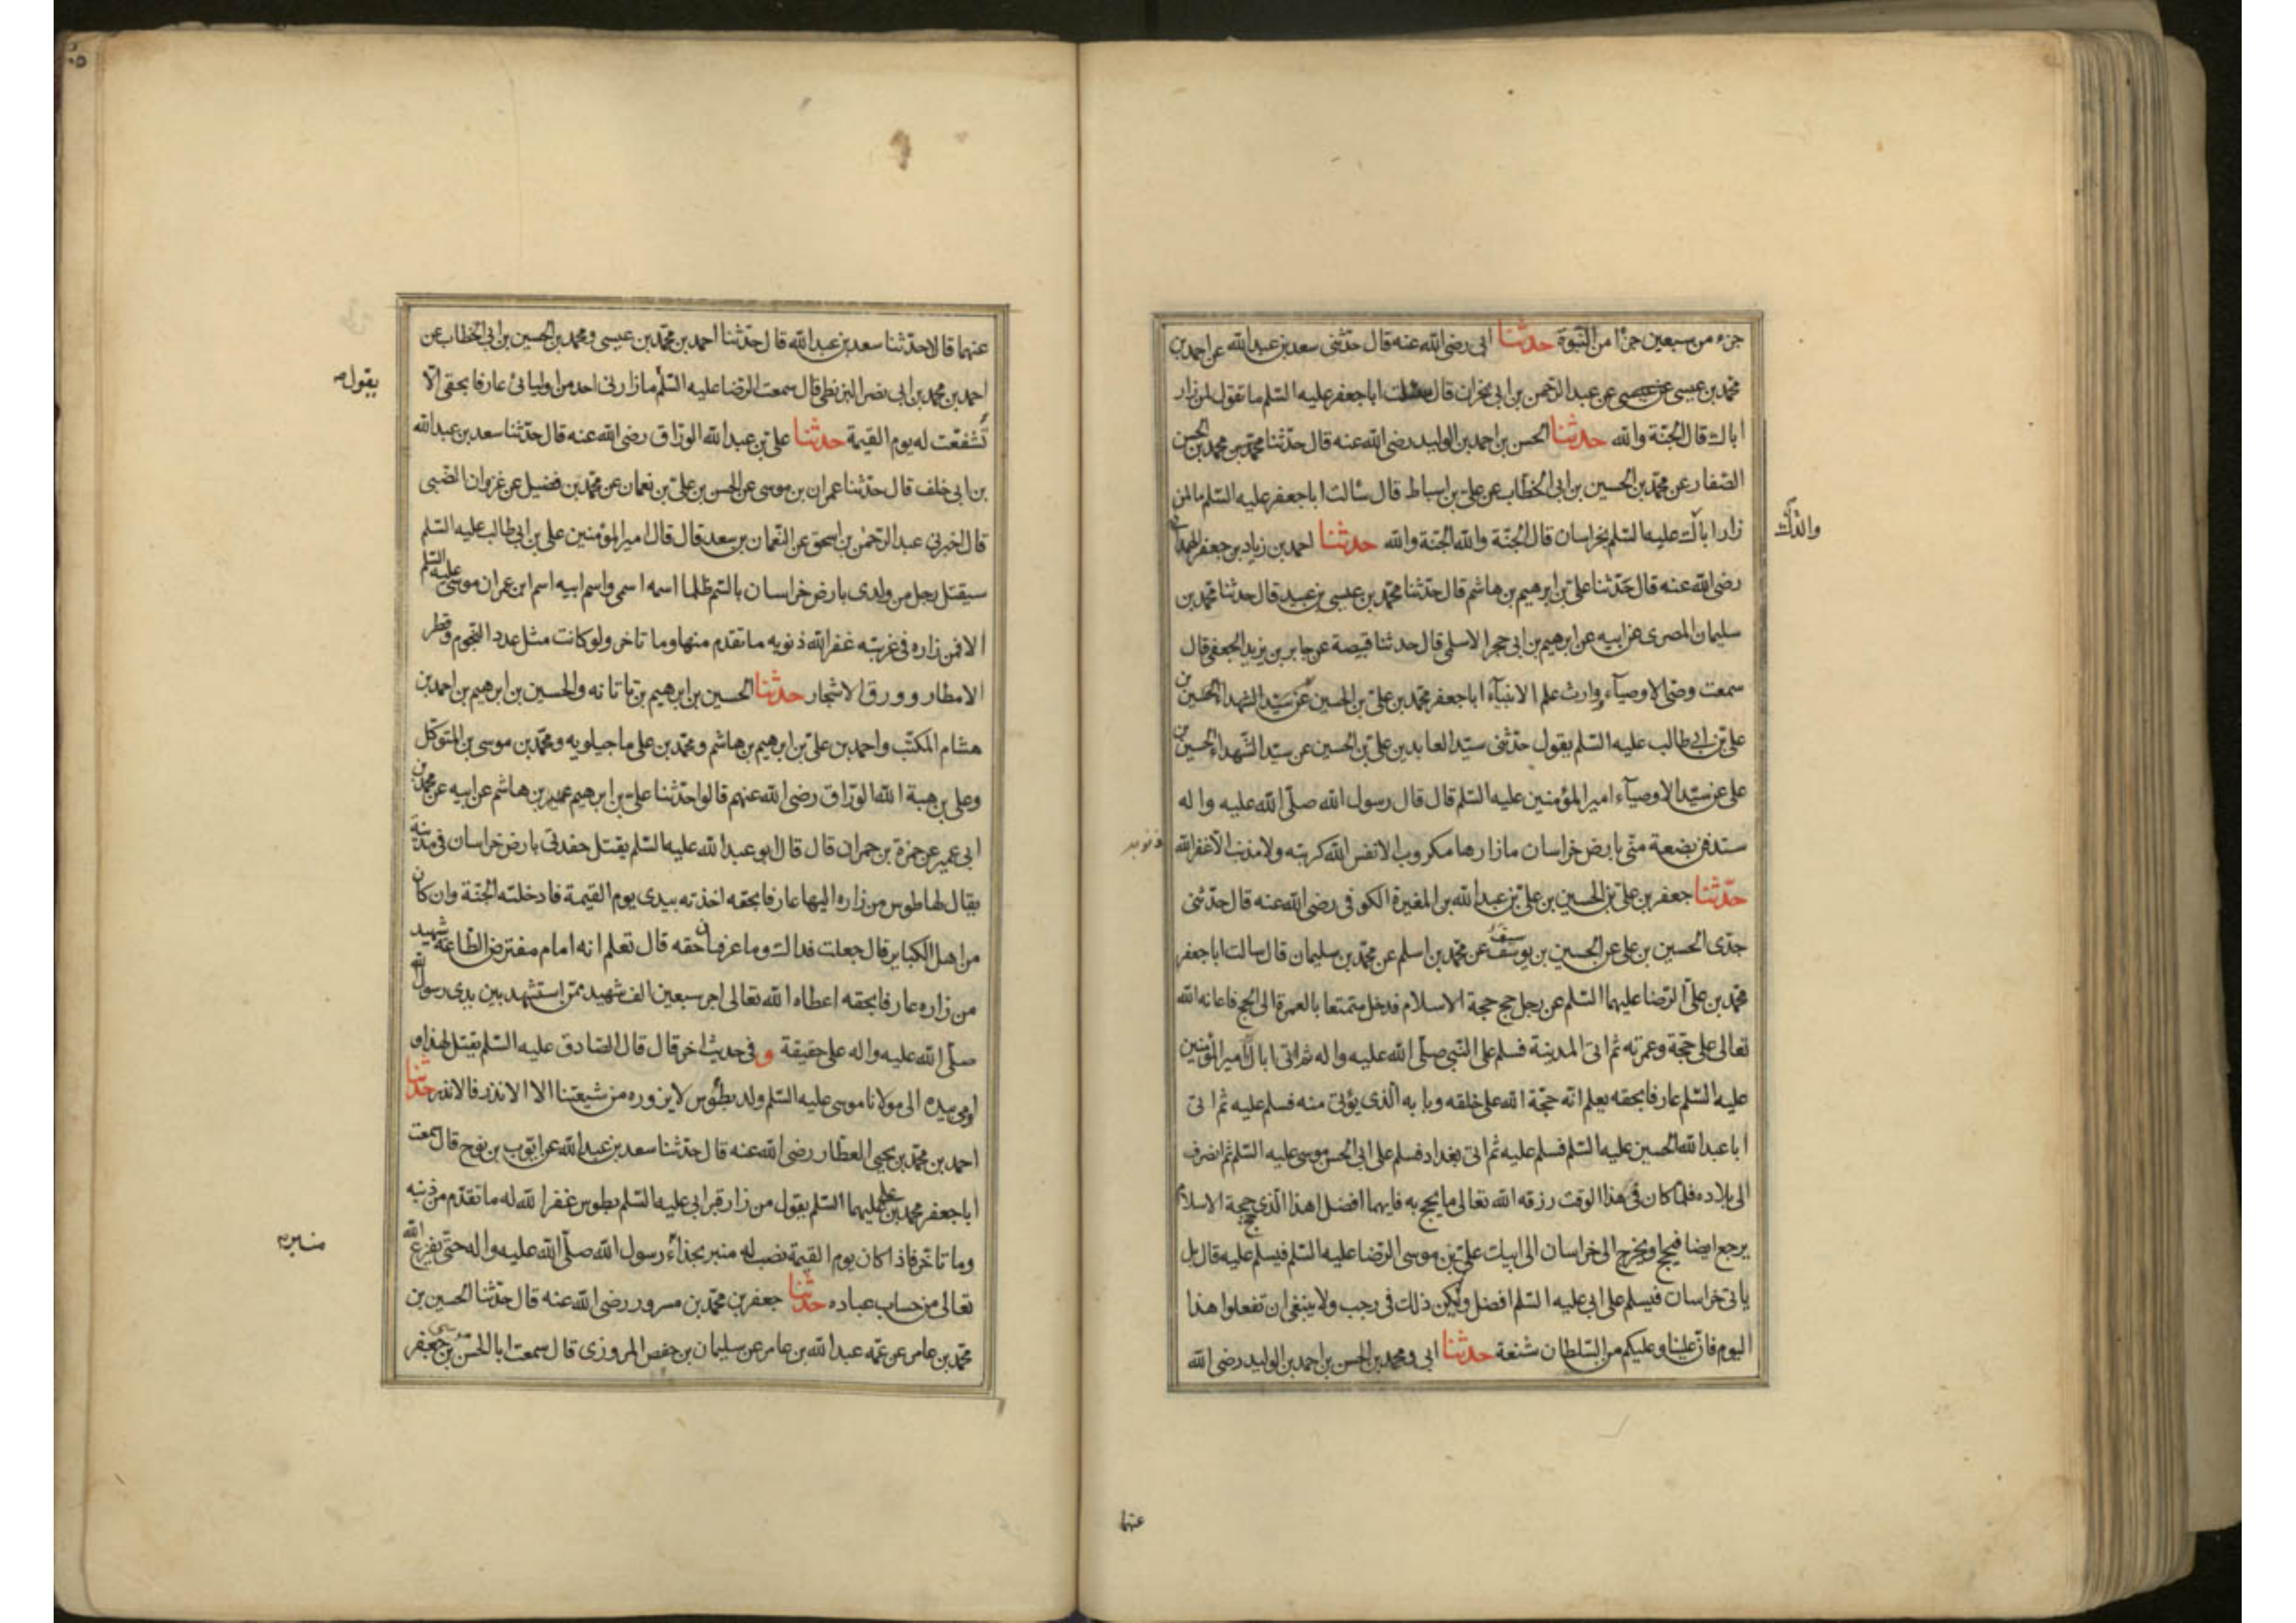 جزء من سبعين جزءا من النبوة حدثنا ابى رضى الله عنه قال حدثنى سعد بن عبد الله عن احمد بن
محمد بن عيسى عن عبد الرحمن بن ابى نجران قال سئلت ابا جعفر عليه السلم ما تقول لمن زار
اباك قال الجنة والله حدثنا الحسن بن احمد بن الوليد رضى الله عنه قال حدثنا محمد بن محمد بن الحسن
الصفار عن محمد بن الحسين بن ابى الخطاب عن على بن اسباط قال سالت ابا جعفر عليه السلم ما لمن
زار اباك عليه السلم بخراسان قال الجنة والله الجنة والله حدثنا احمد بن زياد بن جعفر الهمدانى
والدك
رضى الله عنه قال حدثنا على بن ابرهيم بن هاشم قال حدثنا محمد بن عيسى بن عبيد قال حدثنا محمد بن
سليمان المصرى عن ابيه عن ابرهيم بن ابى حجر الاسلمى قال حدثنا قبيصة عن جابر بن يزيد الجعفى قال
سمعت وصى الاوصيآء ووارث علم الانبيآء ابا جعفر محمد بن على بن الحسين عن سيد الشهداء الحسين بن
على بن ابى طالب عليه السلم يقول حدثنى سيد العابدين على بن الحسين عن سيد الشهداء الحسين بن
على عن سيد الاوصيآء امير المؤمنين عليه السلم قال قال رسول الله صلى الله عليه واله
ستدفن بضعة منى بارض خراسان ما زارها مكروب الا نفس الله كربته ولا مذنب الا غفر الله
ذنوبه
حدثنا جعفر بن على بن الحسين بن على بن عبد الله بن المغيرة الكوفى رضى الله عنه قال حدثنى
جدى الحسين بن على عن الحسين بن يوسف عن محمد بن اسلم عن محمد بن سليمان قال سالت ابا جعفر
محمد بن على الرضا عليهما السلم عن رجل حج حجة الاسلام فدخل متمتعا بالعمرة الى الحج فاعانه الله
تعالى على حجة وعمرته ثم اتى المدينة فسلم على النبى صلى الله عليه واله ثم اتى اباك امير المؤمنين
عليه السلم عارفا بحقه يعلم انه حجة الله على خلقه وبابه الذى يؤتى منه فسلم عليه ثم اتى
ابا عبد الله الحسين عليه السلم فسلم عليه ثم اتى بغداد فسلم على ابى الحسن موسى عليه السلم ثم انصرف
الى بلاده فلما كان فى هذا الوقت رزقه الله تعالى ما يحج به فايهما افضل اهذا الذى حج حجة الاسلام
يرجع ايضا فيحج او يخرج الى خراسان الى ابيك على بن موسى الرضا عليه السلم فيسلم عليه قال بل
ياتى خراسان فيسلم على ابى عليه السلم افضل وليكن ذلك فى رجب ولا ينبغى ان تفعلوا هذا
اليوم فان علينا وعليكم من السلطان شنعة حدثنا ابى ومحمد بن الحسن بن احمد بن الوليد رضى الله
عنهما
عنهما قالا حدثنا سعد بن عبد الله قال حدثنا احمد بن محمد بن عيسى ومحمد بن الحسين بن ابى الخطاب عن
احمد بن محمد بن ابى نصر البزنطى قال سمعت الرضا عليه السلم ما زارنى احد من اوليائى عارفا بحقى الا
يقول
تشفعت له يوم القيمة حدثنا على بن عبد الله الوراق رضى الله عنه قال حدثنا سعد بن عبد الله
بن ابى خلف قال حدثنا عمران بن موسى عن الحسن بن على بن نعمان عن محمد بن فضيل عن غزوان الضبى
قال اخبرنى عبد الرحمن بن اسحق عن النعمان بن سعد قال قال امير المؤمنين على بن ابى طالب عليه السلم
سيقتل رجل من ولدى بارض خراسان بالسم ظلما اسمه اسمى واسم ابيه اسم ابن عمران موسى عليه السلم
الا فمن زاره فى غربته غفر الله ذنوبه ما تقدم منها وما تاخر ولو كانت مثل عدد النجوم وقطر
الامطار وورق الاشجار حدثنا الحسين بن ابرهيم بن تاتانه والحسين بن ابرهيم بن احمد بن
هشام المكتب واحمد بن على بن ابرهيم بن هاشم ومحمد بن على ماجيلويه ومحمد بن موسى بن المتوكل
وعلى بن هبة الله الوراق رضى الله عنهم قالوا حدثنا على بن ابرهيم عمير بن هاشم عن ابيه عن محمد بن
ابى عمير عن حمزة بن حمران قال قال ابو عبد الله عليه السلم يقتل حفدتى بارض خراسان فى مدينة
يقال لها طوس من زاره اليها عارفا بحقه اخذته بيدى يوم القيمة فادخلته الجنة وان كان
من اهل الكباير قال جعلت فداك وما عرفان حقه قال تعلم انه امام مفترض الطاعة شهيد
من زاره عارفا بحقه اعطاه الله تعالى اجر سبعين الف شهيد ممن استشهد بين يدى رسول الله
صلى الله عليه واله على حقيقة و فى حديث اخر قال قال الصادق عليه السلم يقتل لهذا و
اومى بيده الى مولانا موسى عليه السلم ولد بطوس لا يزوره من شيعتنا الا الاندر فالاندر حدثنا
احمد بن محمد بن يحيى العطار رضى الله عنه قال حدثنا سعد بن عبد الله عن ايوب بن نوح قال سمعت
ابا جعفر محمد بن على عليهما السلم يقول من زار قبر ابى عليه السلم بطوس غفر الله له ما تقدم من ذنبه
وما تاخر فاذا كان يوم القيمة نصب له منبر بحذاء رسول الله صلى الله عليه واله حتى يفرغ الله
منبره
تعالى من حساب عباده حدثنا جعفر بن محمد بن مسرور رضى الله عنه قال حدثنا الحسين بن
محمد بن عامر عن عمه عبد الله بن عامر عن سليمان بن حفص المروزى قال سمعت ابا الحسن موسى بن جعفر